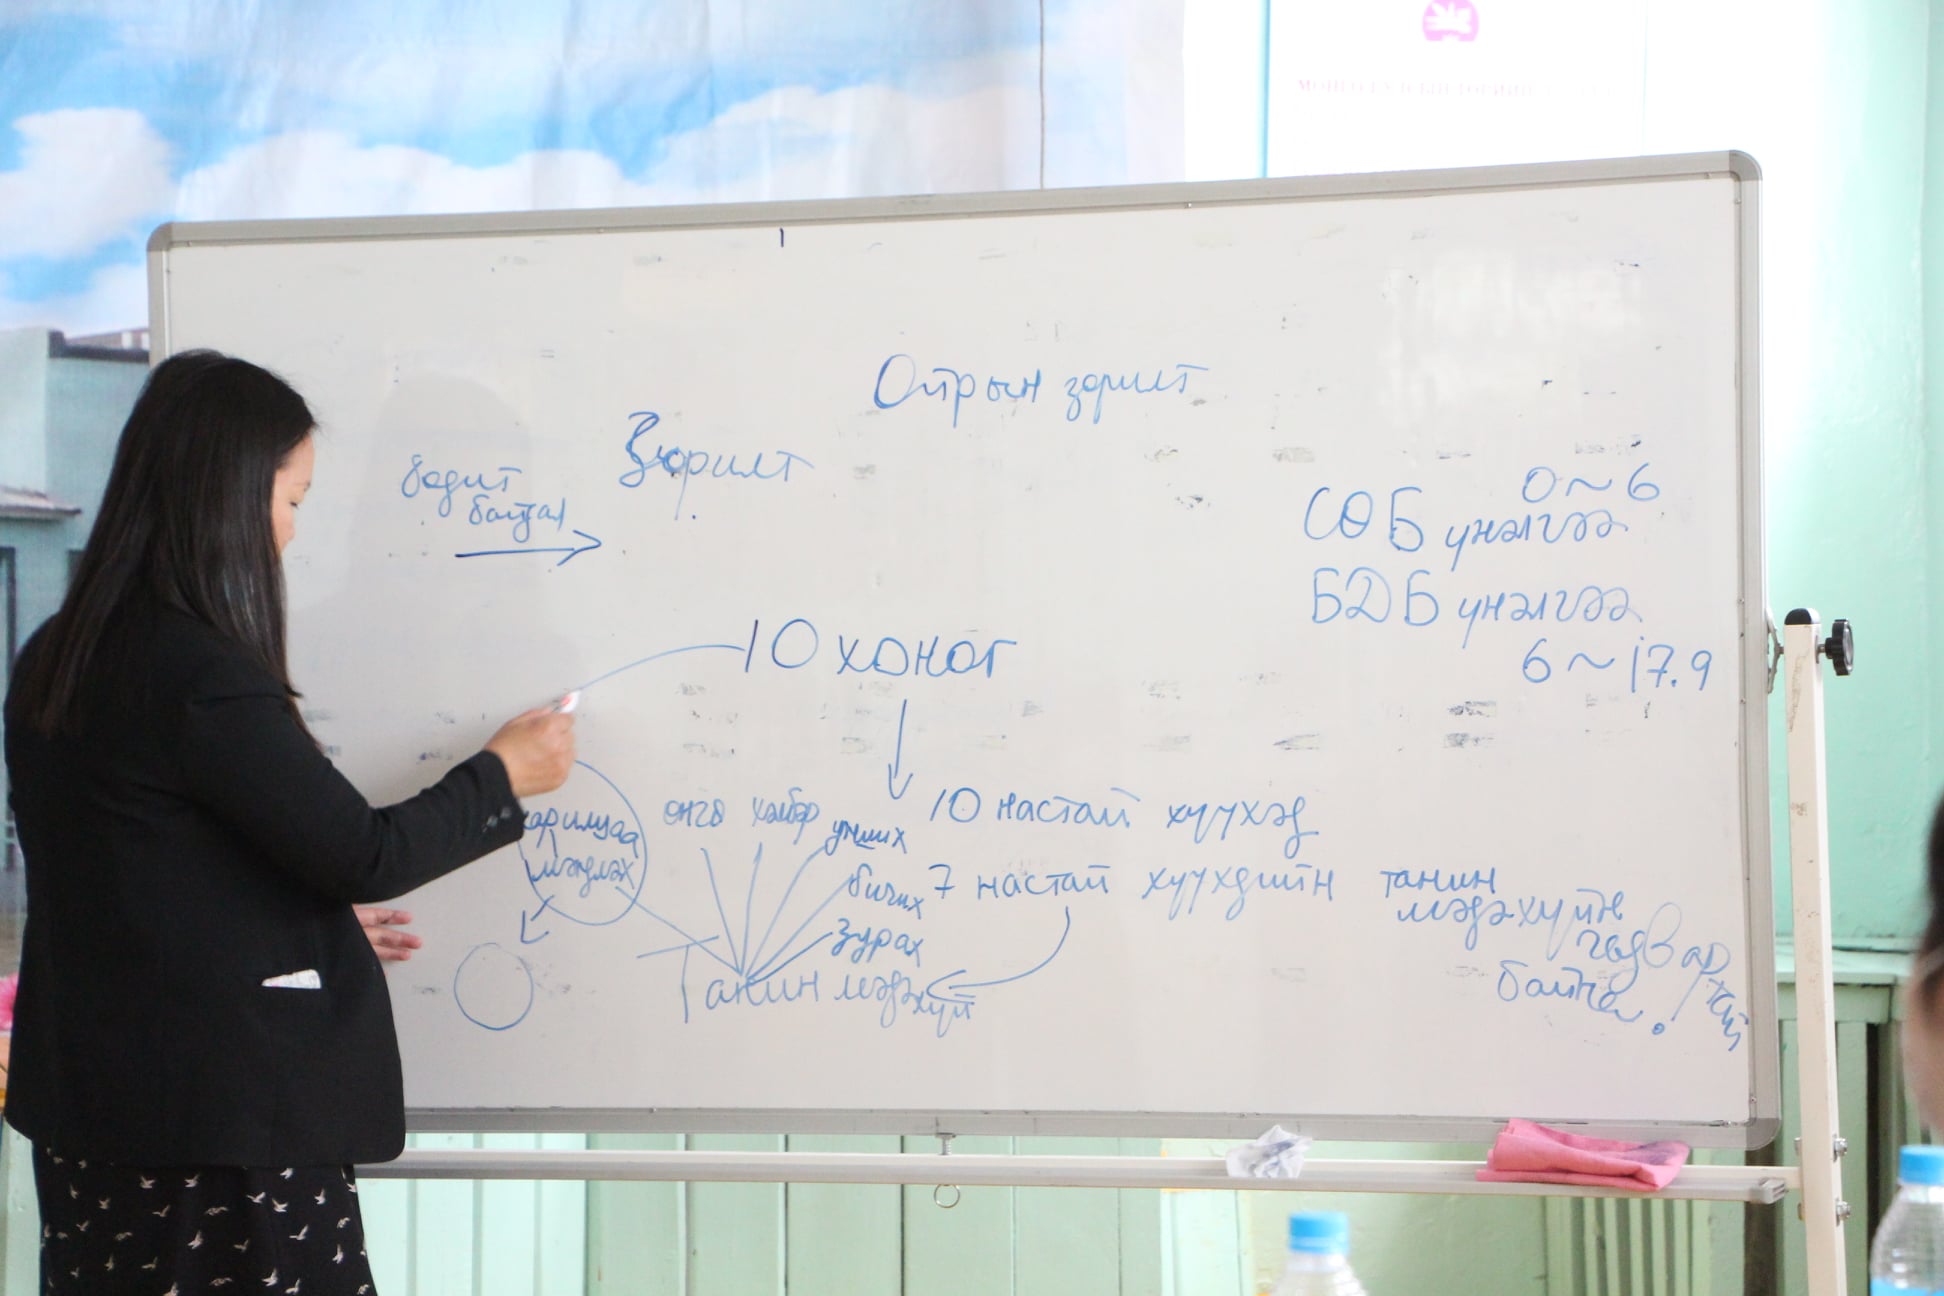 Ойрын зорилт
Зорилт
бодит
байдал
0~6
СӨБ үнэлгээ
БДБ үнэлгээ
6~17.9
10 хоног
10 настай хүүхэд
7 настай хүүхдийн танин
мэдэхүйн
чадвартай
байна.
харилцаа
мэндлэх
өнгө хэлбэр
унших
бичих
зурах
Танин мэдэхүй